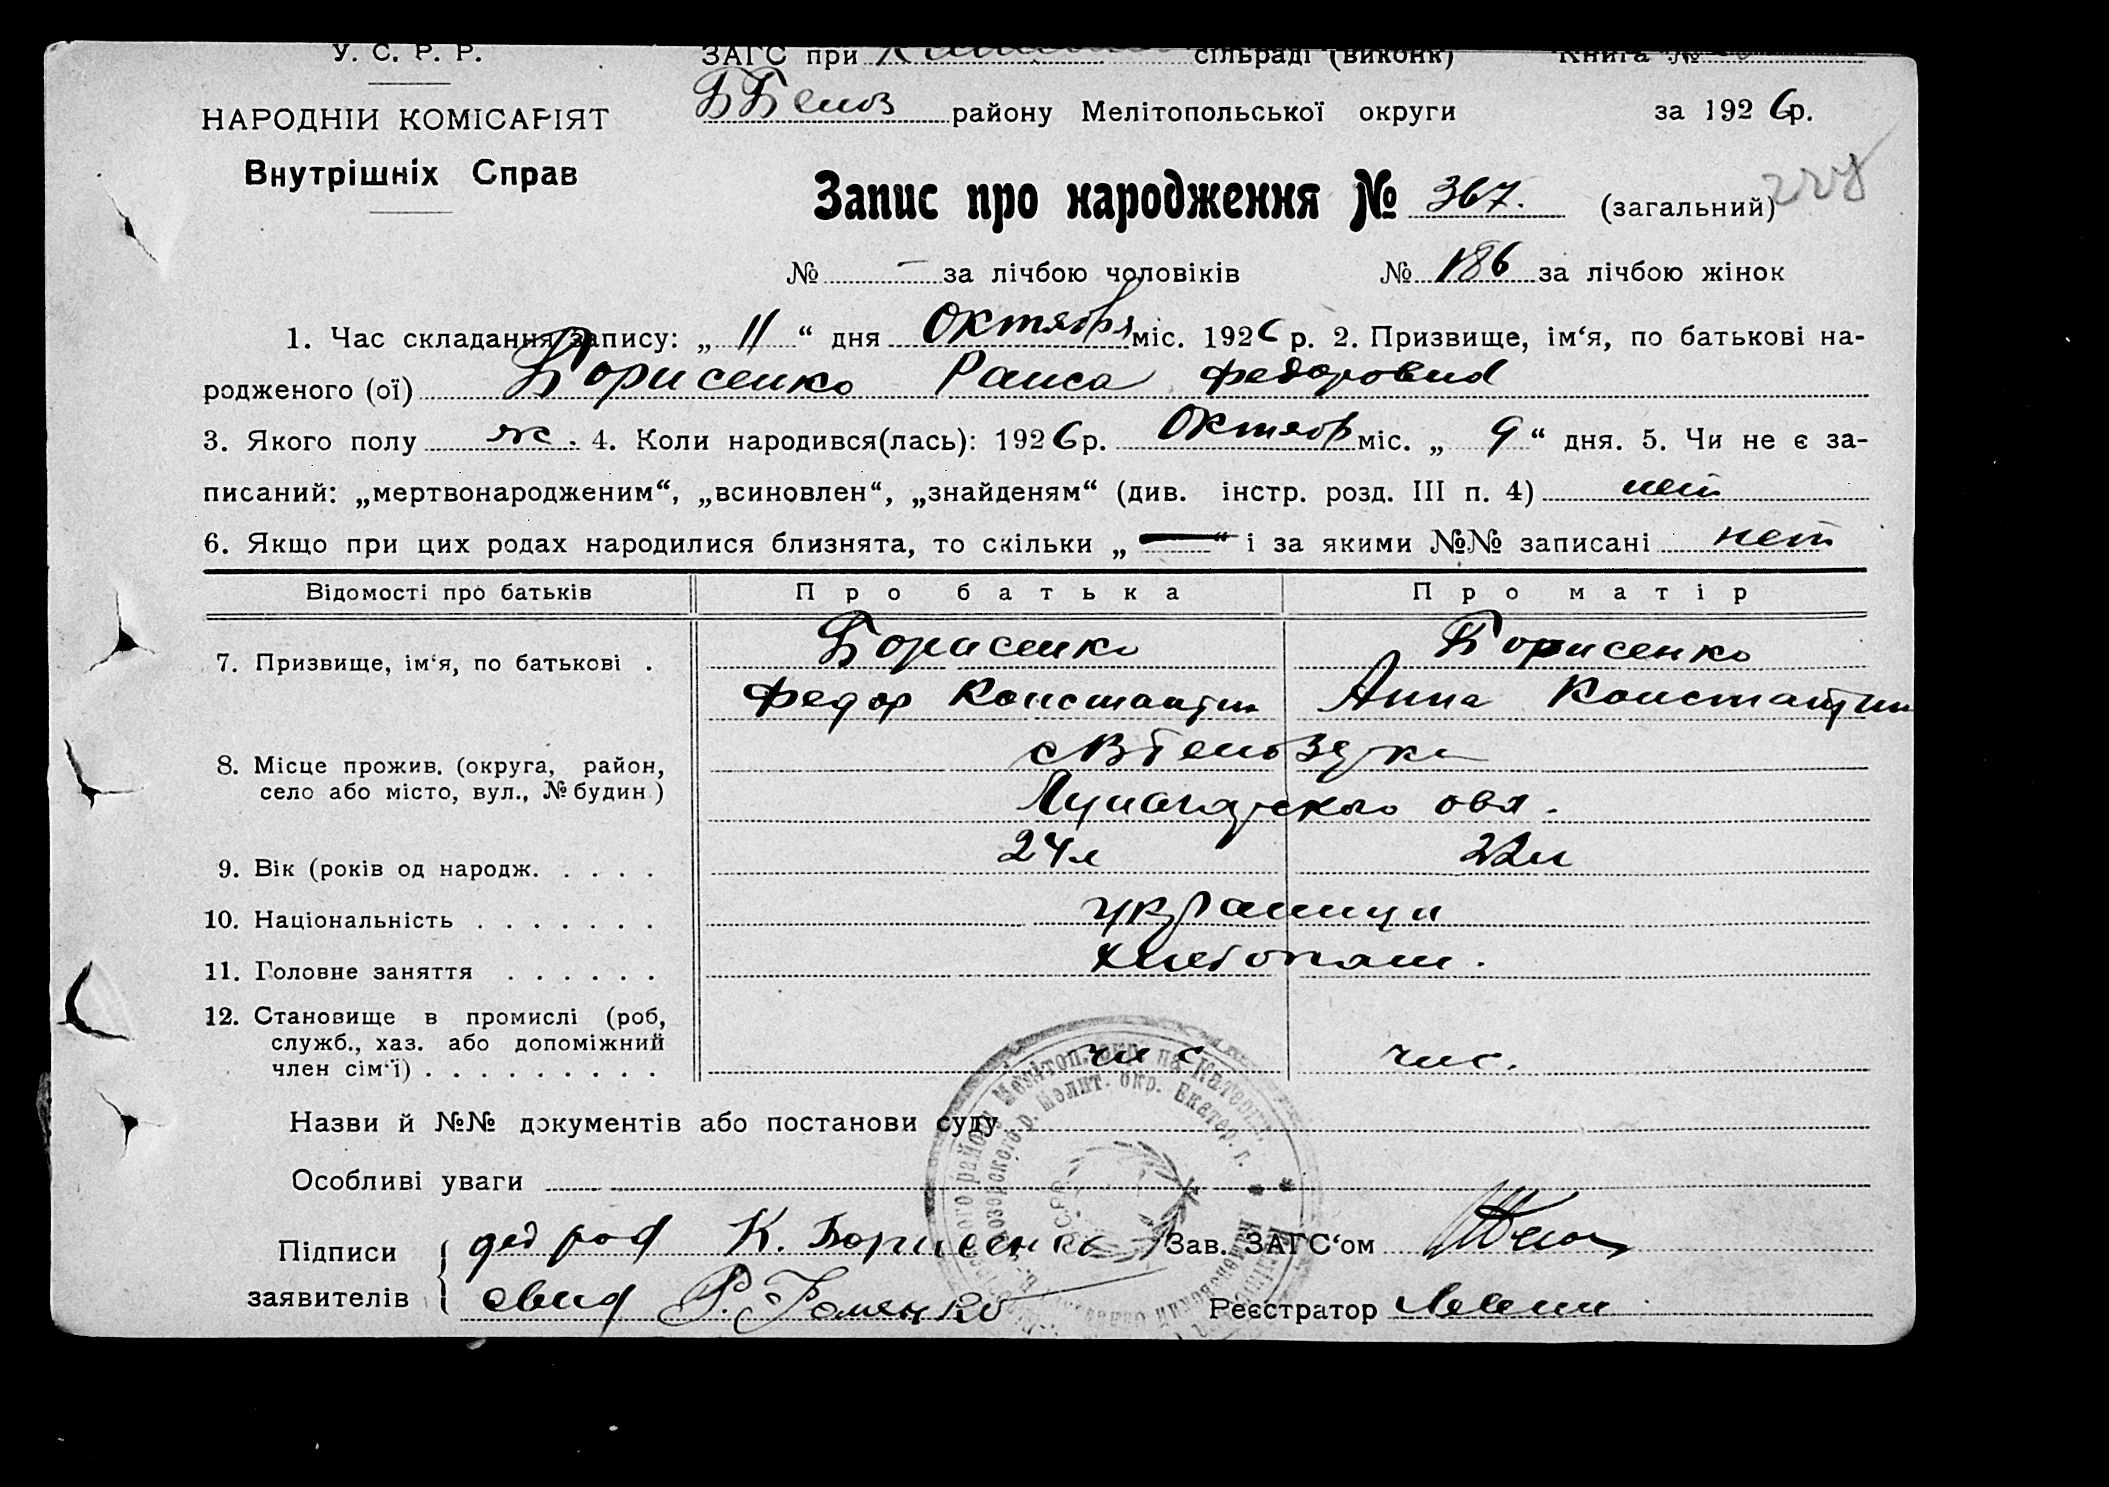 У. С. Р. Р.
ЗАГС при сільраді (виконк) Книга №
НАРОДНІЙ КОМІСАРІЯТ
ББелоз району Мелітопольської округи за 1926р.
Внутрішніх Справ
Запис про народження № 367. (загальний)
№ — за лічбою чоловіків № 186 за лічбою жінок
1. Час складання запису: „ 11 “ дня Октября міс. 1926 р. 2. Призвище, ім‘я, по батькові на-
родженого (ої) Борисенко Раиса Федоровна
3. Якого полу ж. 4. Коли народився(лась): 1926р. Октябр міс. „ 9 “ дня. 5. Чи не є за-
писаний: „мертвонародженим“, „всиновлен“, „знайденям“ (див. інстр. розд. III п. 4) нет
6. Якщо при цих родах народилися близнята, то скільки „ — “ і за якими №№ записані нет
Відомості про батьків Про батька Про матір
7. Призвище, ім‘я, по батькові . Борисенко Борисенко
Федор Константин Анна Константин
8. Місце прожив. (округа, район,
село або місто, вул., № будин.)
9. Вік (років од народж. . . . . 24л 22л
10. Національність . . . . . . . украинци
11. Головне заняття . . . . . . хлебопаш.
12. Становище в промислі (роб,
служб., хаз. або допоміжний
член сім‘ї) . . . . . . . . . . чл с чл с.
Назви й №№ документів або постанови суду
Особливі уваги
Підписи К. Борисенко Зав. ЗАГС‘ом
заявителів Реєстратор